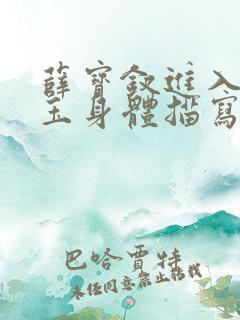 薛寶釵進入
玉身體描寫
巴哈賈特
未經同意禁止轉載